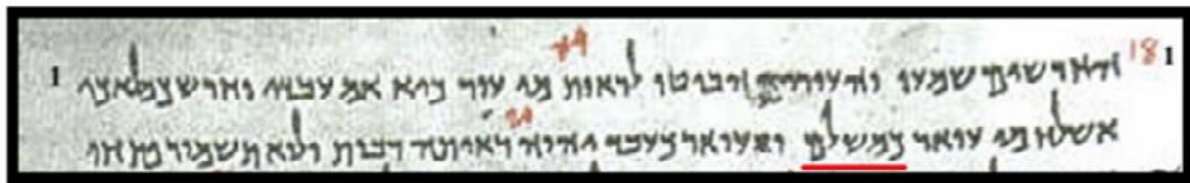 1 18 החרשים שמעו והעורים הביטו לראות 19 מי עור כיא אמ עבדי וחרש כמלאכי 1
אשלח מי עואר כמשלם ועואר כעבד יהוה 20 ראיתה רבות ולוא תשמור פתחו